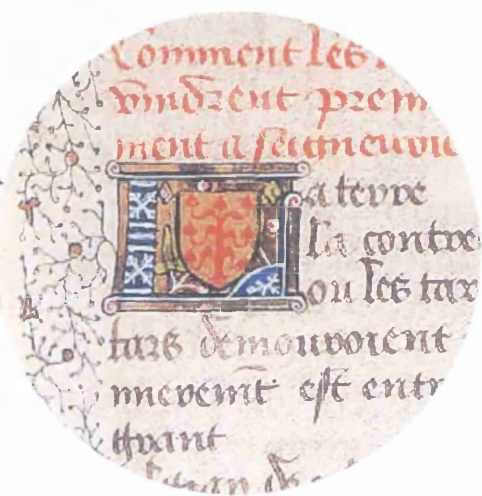 Comment les
vindrent prem
ment a seigneurie
La terre
la contre
ou les tar
tars demouroient
est entr